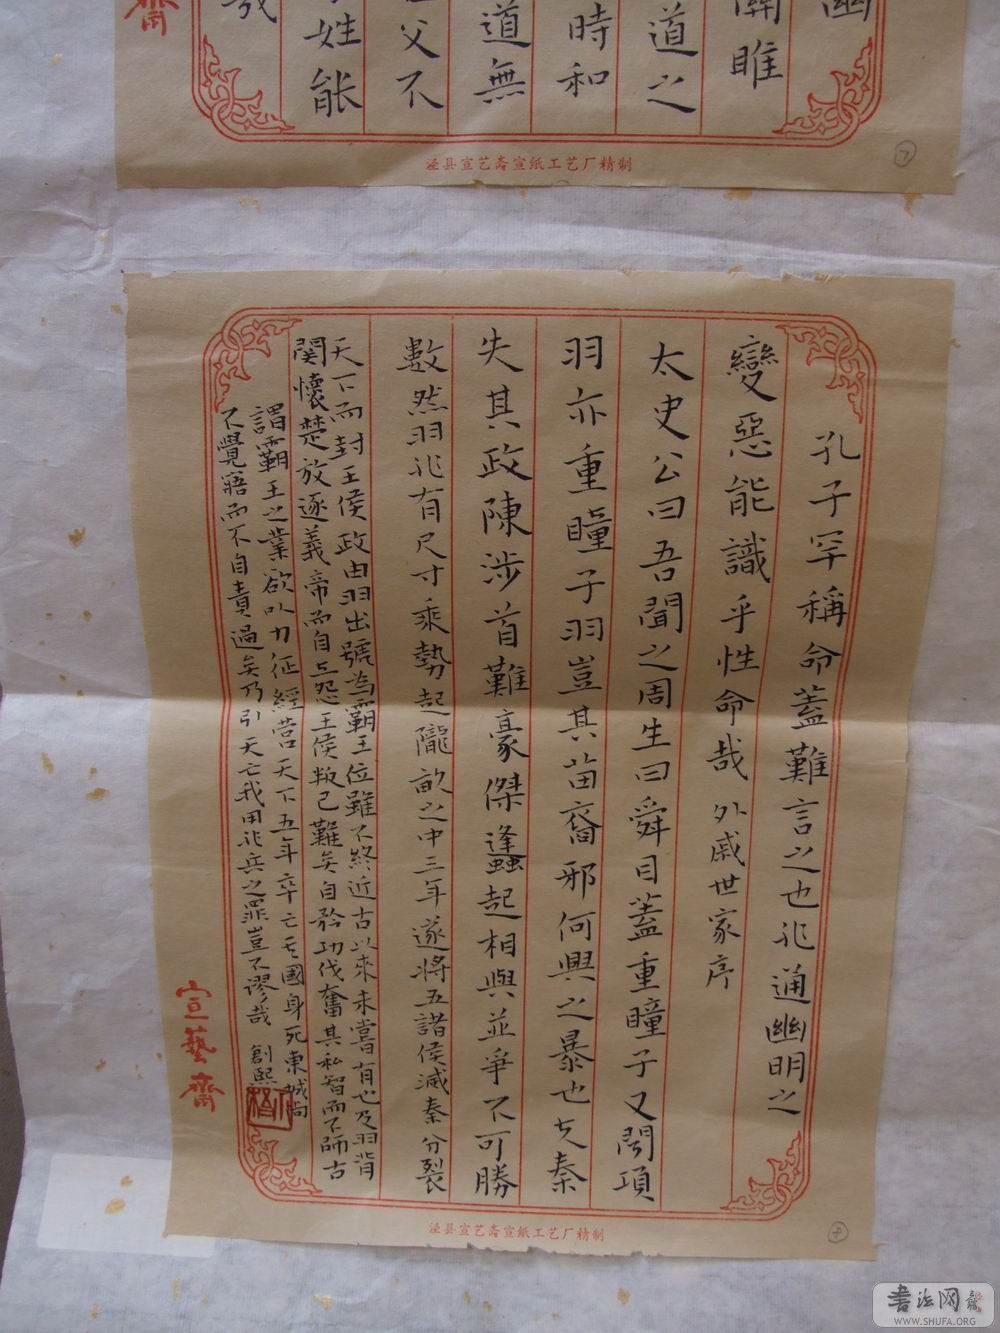 幽
關雎
道之
時和
道無
父不
姓能
哉
齋
泾县宣艺斋宣纸工艺厂精制
7
孔子罕稱命蓋難言之也非通幽明之
變惡能識乎性命哉 外戚世家序
太史公曰吾聞之周生曰舜目蓋重瞳子又聞項
羽亦重瞳子羽豈其苗裔邪何興之暴也夫秦
失其政陳涉首難豪傑蠭起相與並爭不可勝
數然羽非有尺寸乘勢起隴畝之中三年遂將五諸侯滅秦分裂
天下而封王侯政由羽出號為霸王位雖不終近古以來未嘗有也及羽背
關懷楚放逐義帝而自立怨王侯叛己難矣自矜功伐奮其私智而不師古
謂霸王之業欲以力征經營天下五年卒亡其國身死東城尚
不覺寤而不自責過矣乃引天亡我用非兵之罪豈不謬哉 創熙
宣藝齋
泾县宣艺斋宣纸工艺厂精制
8
书法网
WWW.SHUFA.ORG